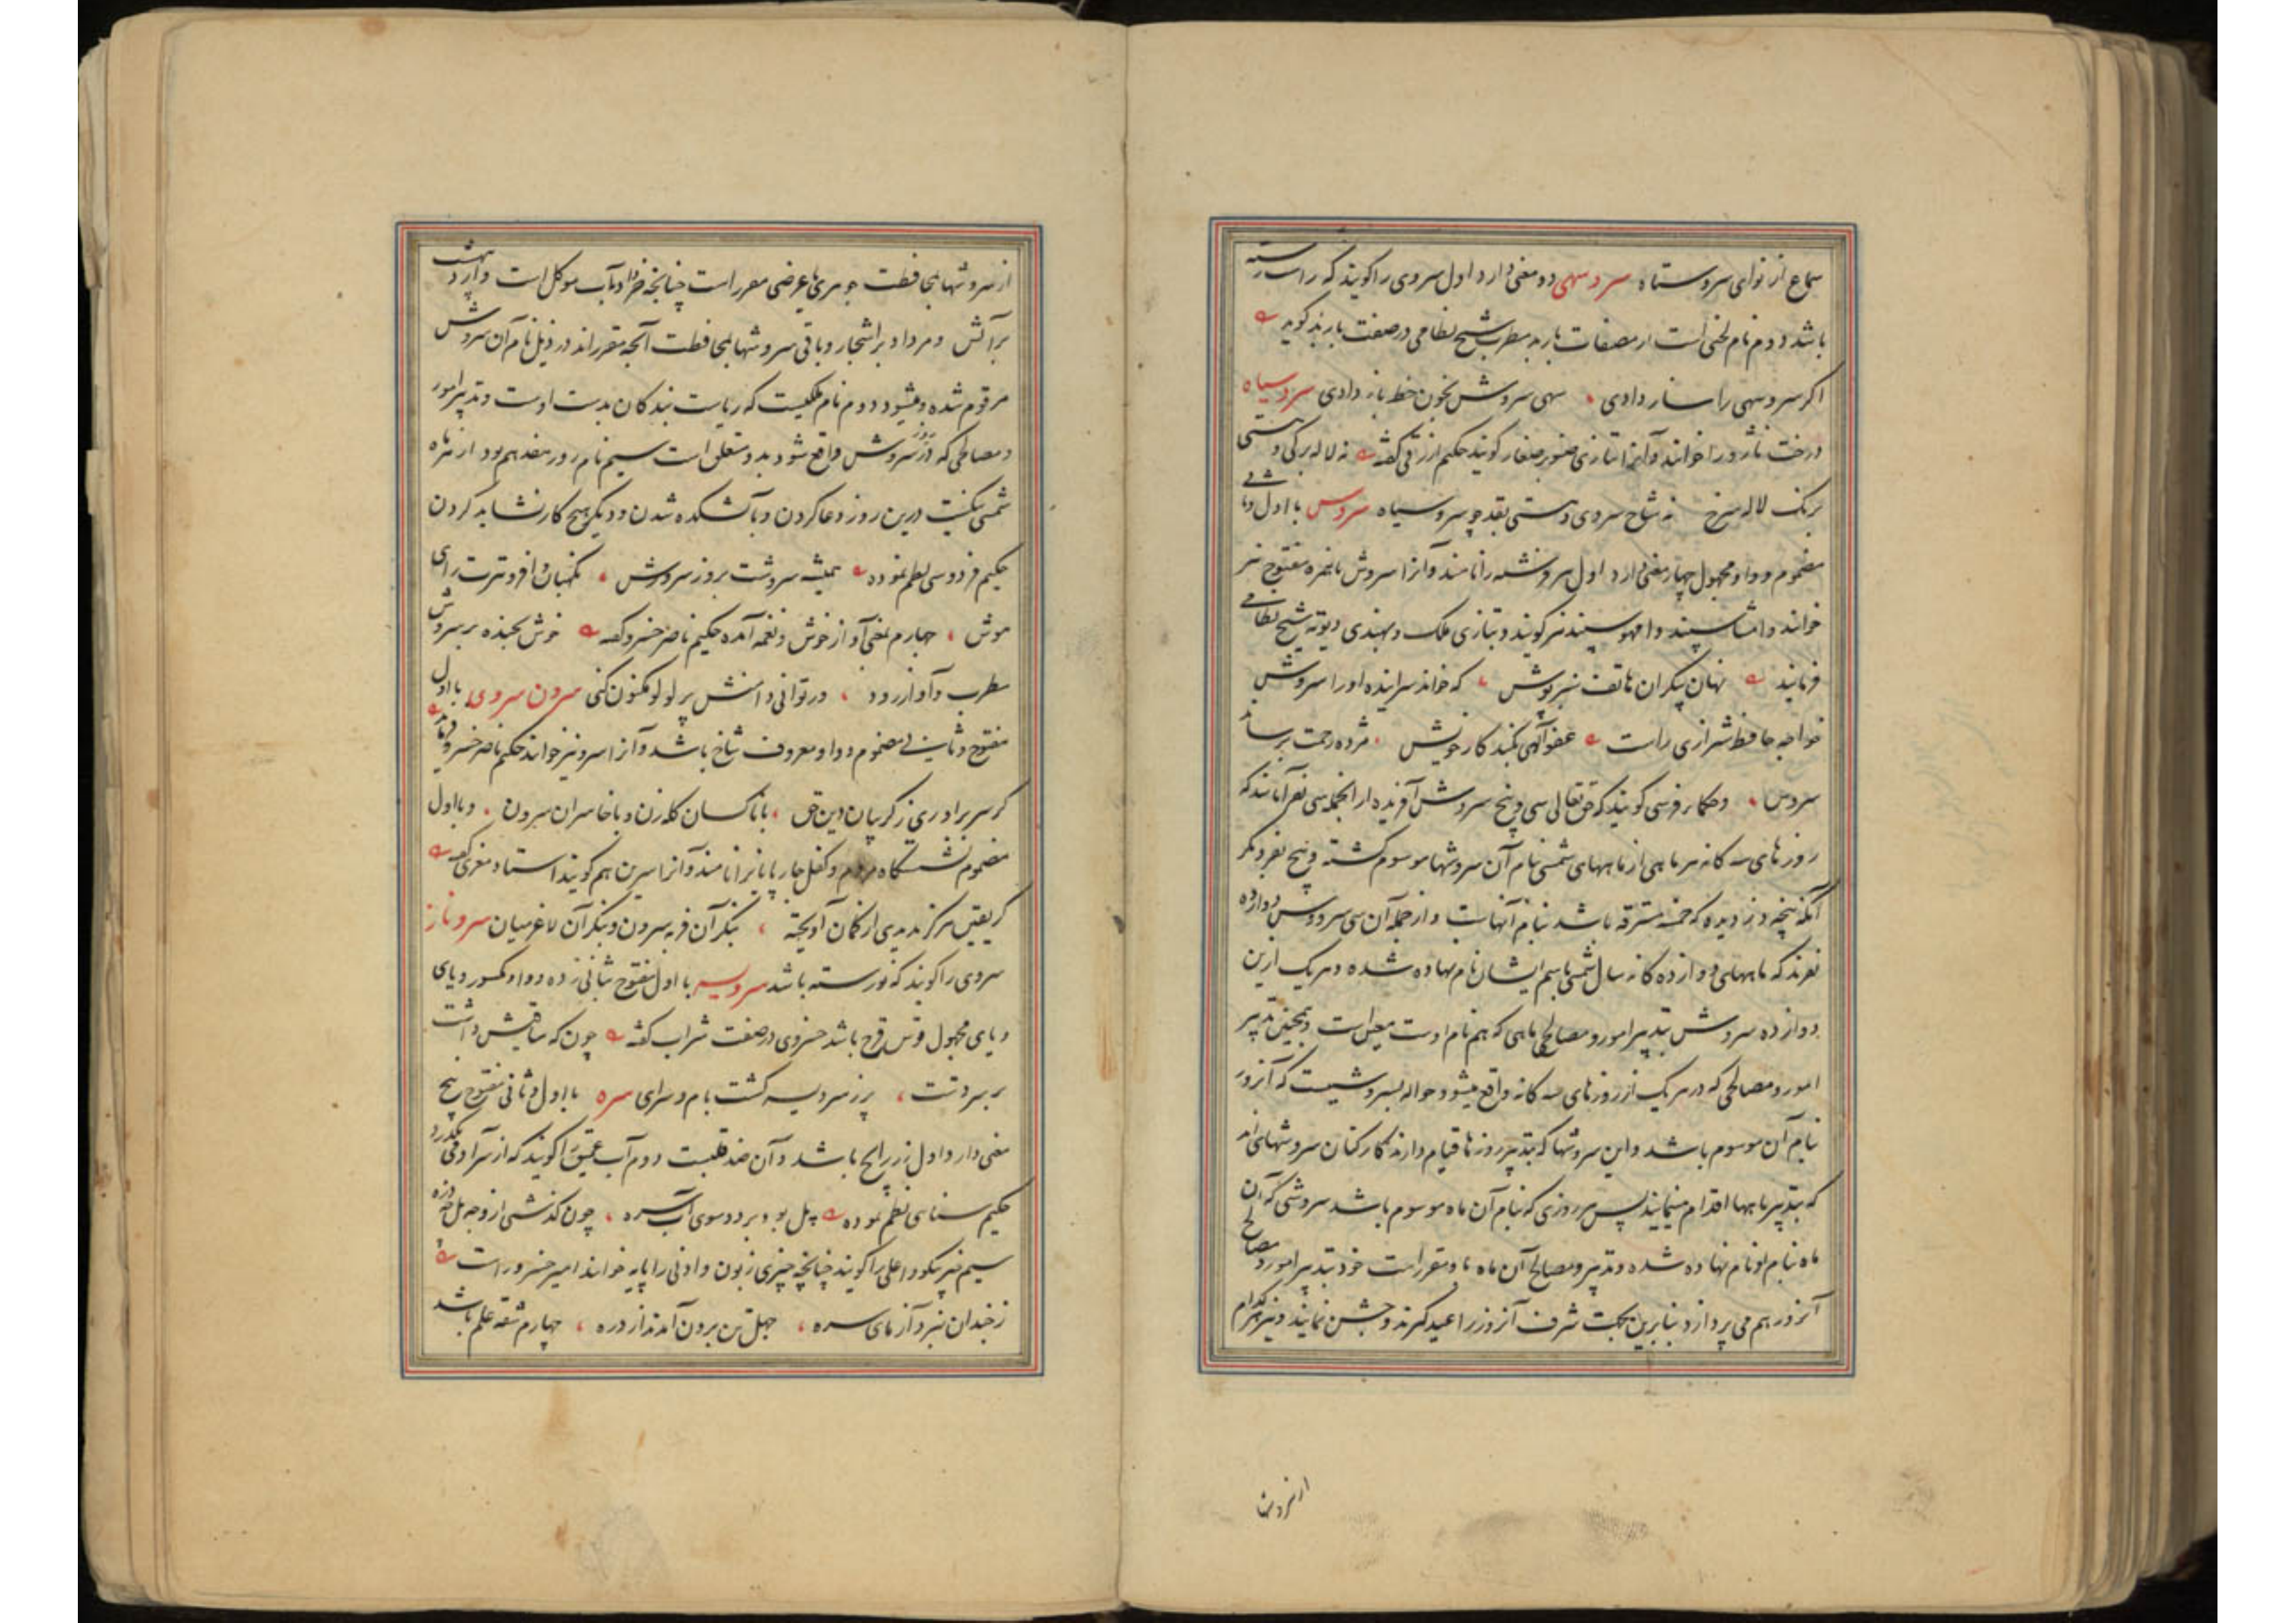 سماع از نوای سروستاه سرو سهی دو معنی دارد اول سروی را گویند که راست رسته
باشد دوم نام لحنی است از مصنفات باربد مطرب شیخ نظامی در صفت باربد گوید
اکر سرو سهی را ساز دادی سهی سروش بخون خط باز دادی سرو سیاه
درخت ناژو را خوانند و آنرا بتازی صنوبر صغار گویند حکیم ازرقی گفته نه لاله برکی و هستی
برنک لاله سرخ نه شاخ سروی و هستی بقد چو سرو سیاه سروش با اول و ثانی
مضموم و واو مجهول چهار معنی دارد اول سر فرشته را نامند و آنرا سروش با همزه مفتوح نیز
خوانند و امشاسپند و امهوسپند نیز گویند و بتازی ملک و بهندی دیوته شیخ نظامی
فرمایند نهان پیکر آن هاتف سبز پوش که خواند سراینده او را سروش
خواجه حافظ شیرازی راست عفو الهی بکند کار خویش مژده رحمت برساند
سروش و حکماء فرس گویند که حق تعالی سی و پنج سروش آفریده از آنجمله سی نفر آنانند که
روزهای سه کانه هر ماهی از ماههای شمسی بنام آن سروشها موسوم کشته و پنج نفر دیگر
آنکه پنجه دزدیده که خمسه مسترقه باشد بنام آنهاست و از جمله آن سی سروش دوازده
نفرند که ماههای دوازده کانه سال شمسی باسم ایشان نام نهاده شده و هر یک ازین
دوازده سروش بتدبیر امور و مصالح ماهی که هم نام اوست معین است و همچنین تدبیر
امور و مصالحی که در هر یک از روزهای سه کانه واقع میشود حواله بسروشیست که آنروز
بنام آن موسوم باشد و این سروشها که بتدبیر روزها قیام دارند کارکنان سروشهای اند
که بتدبیر ماهها اقدام مینمایند پس هر روزی که بنام آن ماه موسوم باشد سروشی که آن
ماه بنام او نام نهاده شده و تدبیر و مصالح آن ماه باو مقرر است خود بتدبیر امور و مصالح
آنروز هم می پردازد بنابرین بجهت شرف آنروز را عید کیرند و جشن نمایند و نیز هر کدام
از سروشها
از سروشها بمحافظت جوهری یا عرضی مقرر است چنانچه خرداد بآب موکل است و اردیبهشت
بر آتش و مرداد بر اشجار و باقی سروشها بمحافظت آنچه مقرراند در ذیل نام آن سروش
مرقوم شده و میشود دوم نام ملکیست که ریاست بندکان بدست اوست و تدبیر امور
و مصالحی که در روز سروش واقع شود بدو متعلق است سیم نام روز هفدهم بود از هر ماه
شمسی نیکست درین روز دعا کردن و بآتشکده شدن و دیکر هیچ کار نشاید کردن
حکیم فردوسی نظم نموده همیشه سروشت بروز سروش نکهبان و افزونترت رای
هوش چهارم بمعنی آواز خوش و نغمه آمده حکیم ناصر خسرو گفته خوش بخنده بر سروش
مطرب و آواز رود در توانی دانش پر لولو مکنون کنی سرون سروی با اول
مفتوح و ثانی مضموم و واو معروف شاخ باشد و آنرا سرو نیز خوانند حکیم ناصر خسرو فرماید
کر سر برادری ز کریبان دین حق با ناکسان کله زن و با خاسران سرون و با اول
مضموم نشستگاه مردم و کفل چارپایانرا نامند و آنرا سرین هم گویند استاد معزی گفته
کر یقین هرکز ندیدی از کمان آویخته بنکر آن فربه سرون و بنکر آن لاغر میان سرو ناز
سروی را گویند که نورسته باشد سرویسه با اول مفتوح بثانی زده و واو مکسور و یای
و یای مجهول قوس قزح باشد خسروی در صفت شراب گفته چون که ساقیش داشت
بر سر دست پر ز سرویسه کشت بام و سرای سره با اول و ثانی مفتوح پنج
معنی دارد اول زر رایج باشد و آن ضد قلبست دوم آب عمیق را گویند که از سر آدمی بکذرد
حکیم سنائی نظم نموده پل بود بر دو سوی آب سره چون کذشتی از وجه پل چه دره
سیم چیز نیکو و اعلی را گویند چنانچه چیزی زبون و ادنی را پایه خوانند امیر خسرو راست
ز خیدان نبرد آزمای سره چهل تن برون آمدند از دره چهارم شقه علم باشد